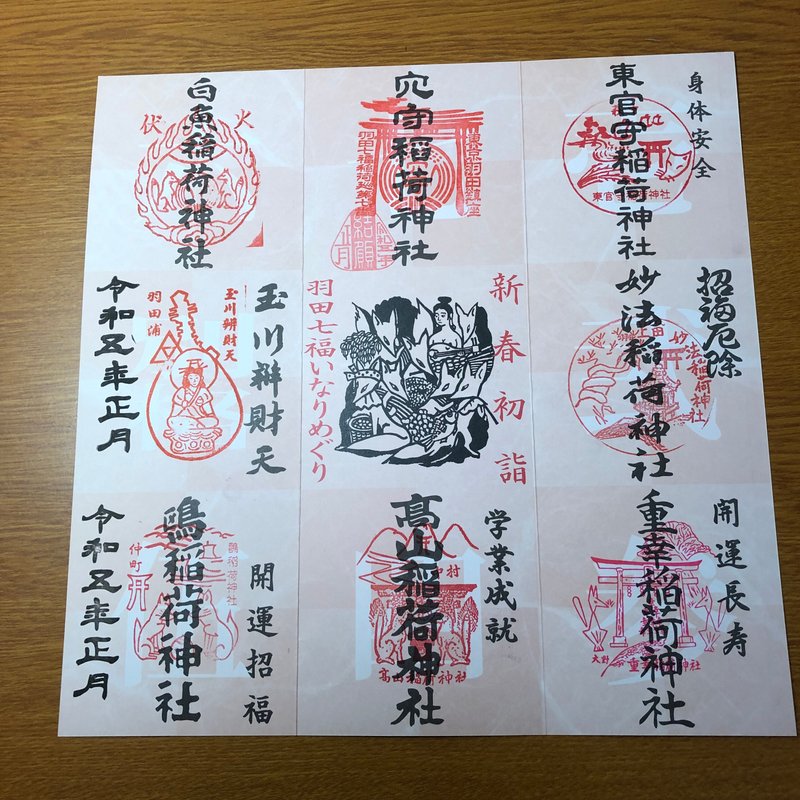 身体安全
東官守稲荷神社
東官守稲荷神社
穴守稲荷神社
東京羽田鎮座
羽田七福稲荷
結願
正月
白魚稲荷神社
火
伏
招福厄除
妙法稲荷神社
妙法稲荷神社
新春初詣
羽田七福いなりめぐり
玉川辨財天
玉川辨財天
羽田浦
令和五年正月
開運長寿
重幸稲荷神社
重幸稲荷神社
学業成就
高山稲荷神社
高山稲荷神社
開運招福
鴎稲荷神社
鴎稲荷神社
仲町
令和五年正月